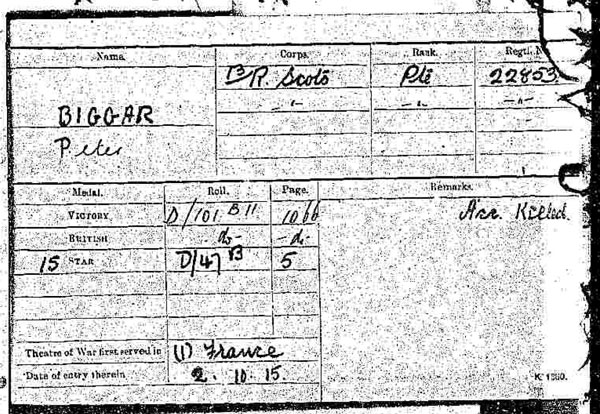 Name. Corps. Rank. Regtl. N
BIGGAR R. Scots Pte 22853
Peter -"- -"- -"-
Medal. Roll. Page. Remarks.
VICTORY D/101 B 11 Acc. Killed.
BRITISH -do- -do-
15 STAR D/47 B 5
Theatre of War first served in (1) France
Date of entry therein 2. 10. 15.
K. 1380.